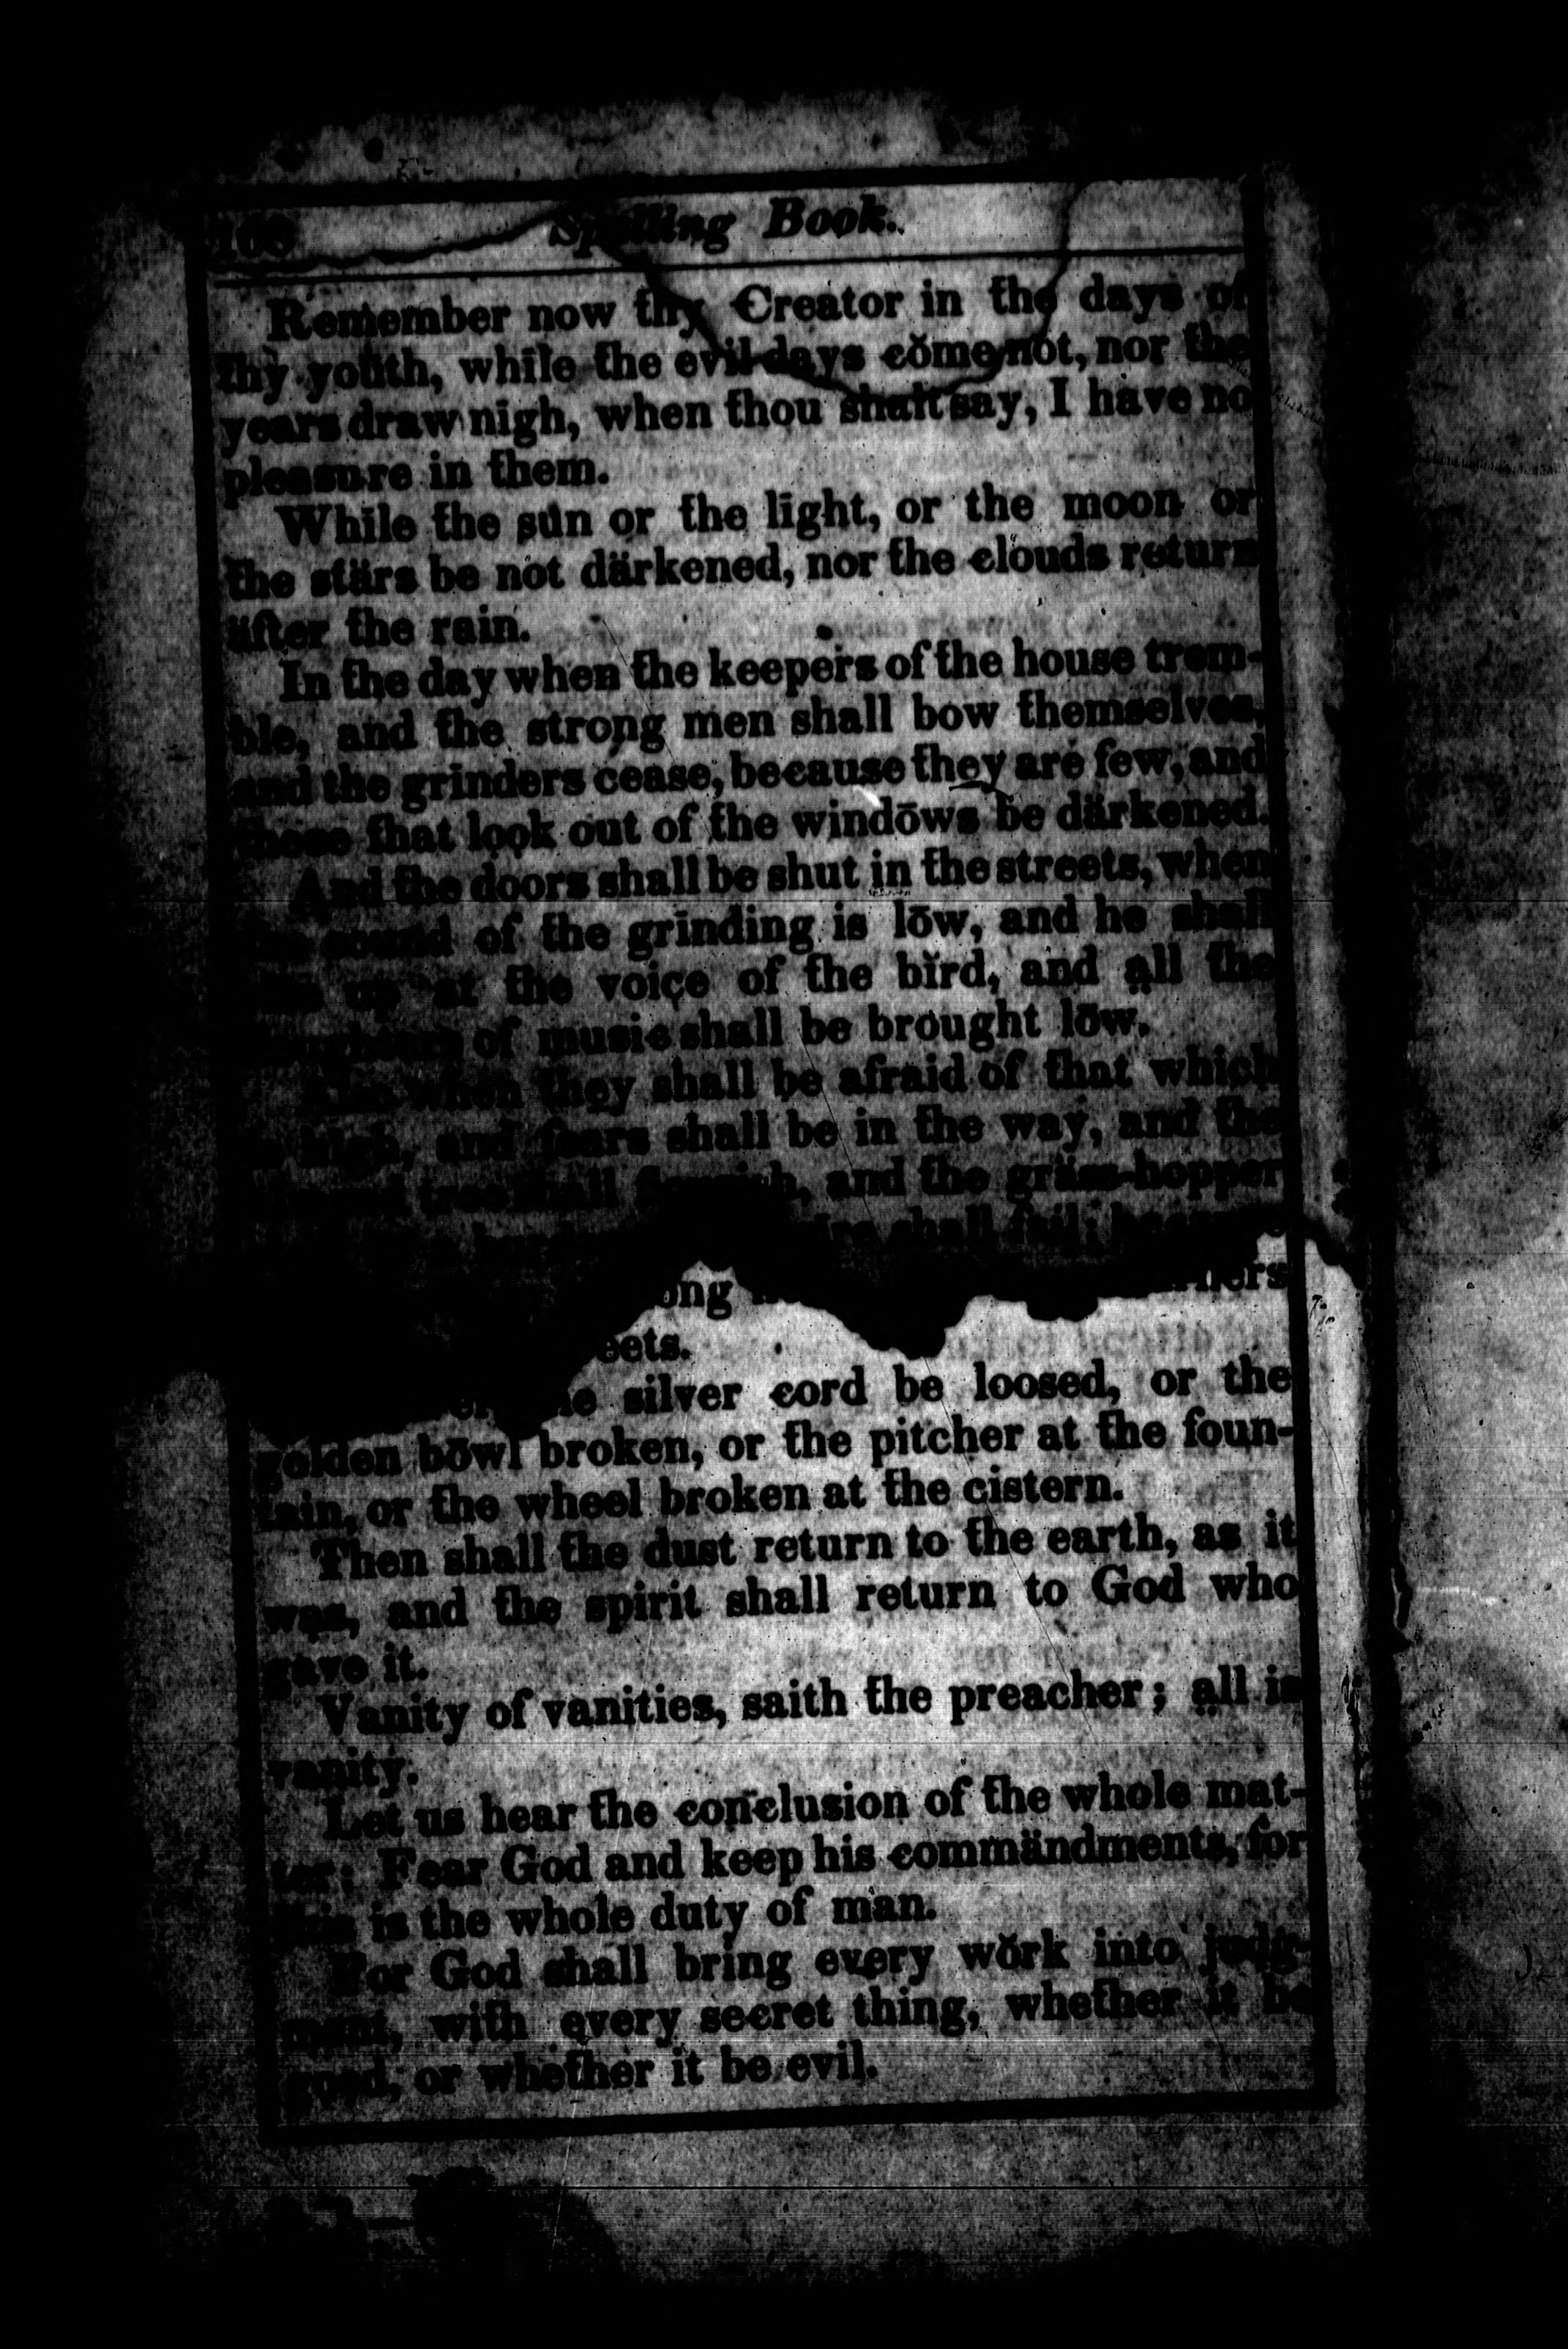 Spelling Book.
Remember now thy Creator in the days of
thy youth, while the evil days cŏme not, nor the
years draw nigh, when thou shalt say, I have no
pleasure in them.
While the sun or the light, or the moon or
the stärs be not därkened, nor the clouds return
äfter the rain.
In the day when the keepers of the house trem-
ble, and the strong men shall bow themselves,
and the grinders cease, because they are few, and
those that look out of the windōws be därkened.
And the doors shall be shut in the streets, when
the sound of the grinding is lōw, and he shall
up at the voice of the bĭrd, and all the
of music shall be brought lōw.
Also when they shall be afraid of that which
is high, and fears shall be in the way, and the
tree shall flourish, and the gräss-hopper
shall fail; because
ong
eets.
the silver cord be loosed, or the
golden bōwl broken, or the pitcher at the foun-
tain, or the wheel broken at the cistern.
Then shall the dust return to the earth, as it
was, and the spirit shall return to God who
gave it.
Vanity of vanities, saith the preacher; all is
vanity.
Let us hear the conclusion of the whole mat-
ter: Fear God and keep his commändments, for
this is the whole duty of man.
For God shall bring every wŏrk into judg-
ment, with every secret thing, whether it be
good, or whether it be evil.